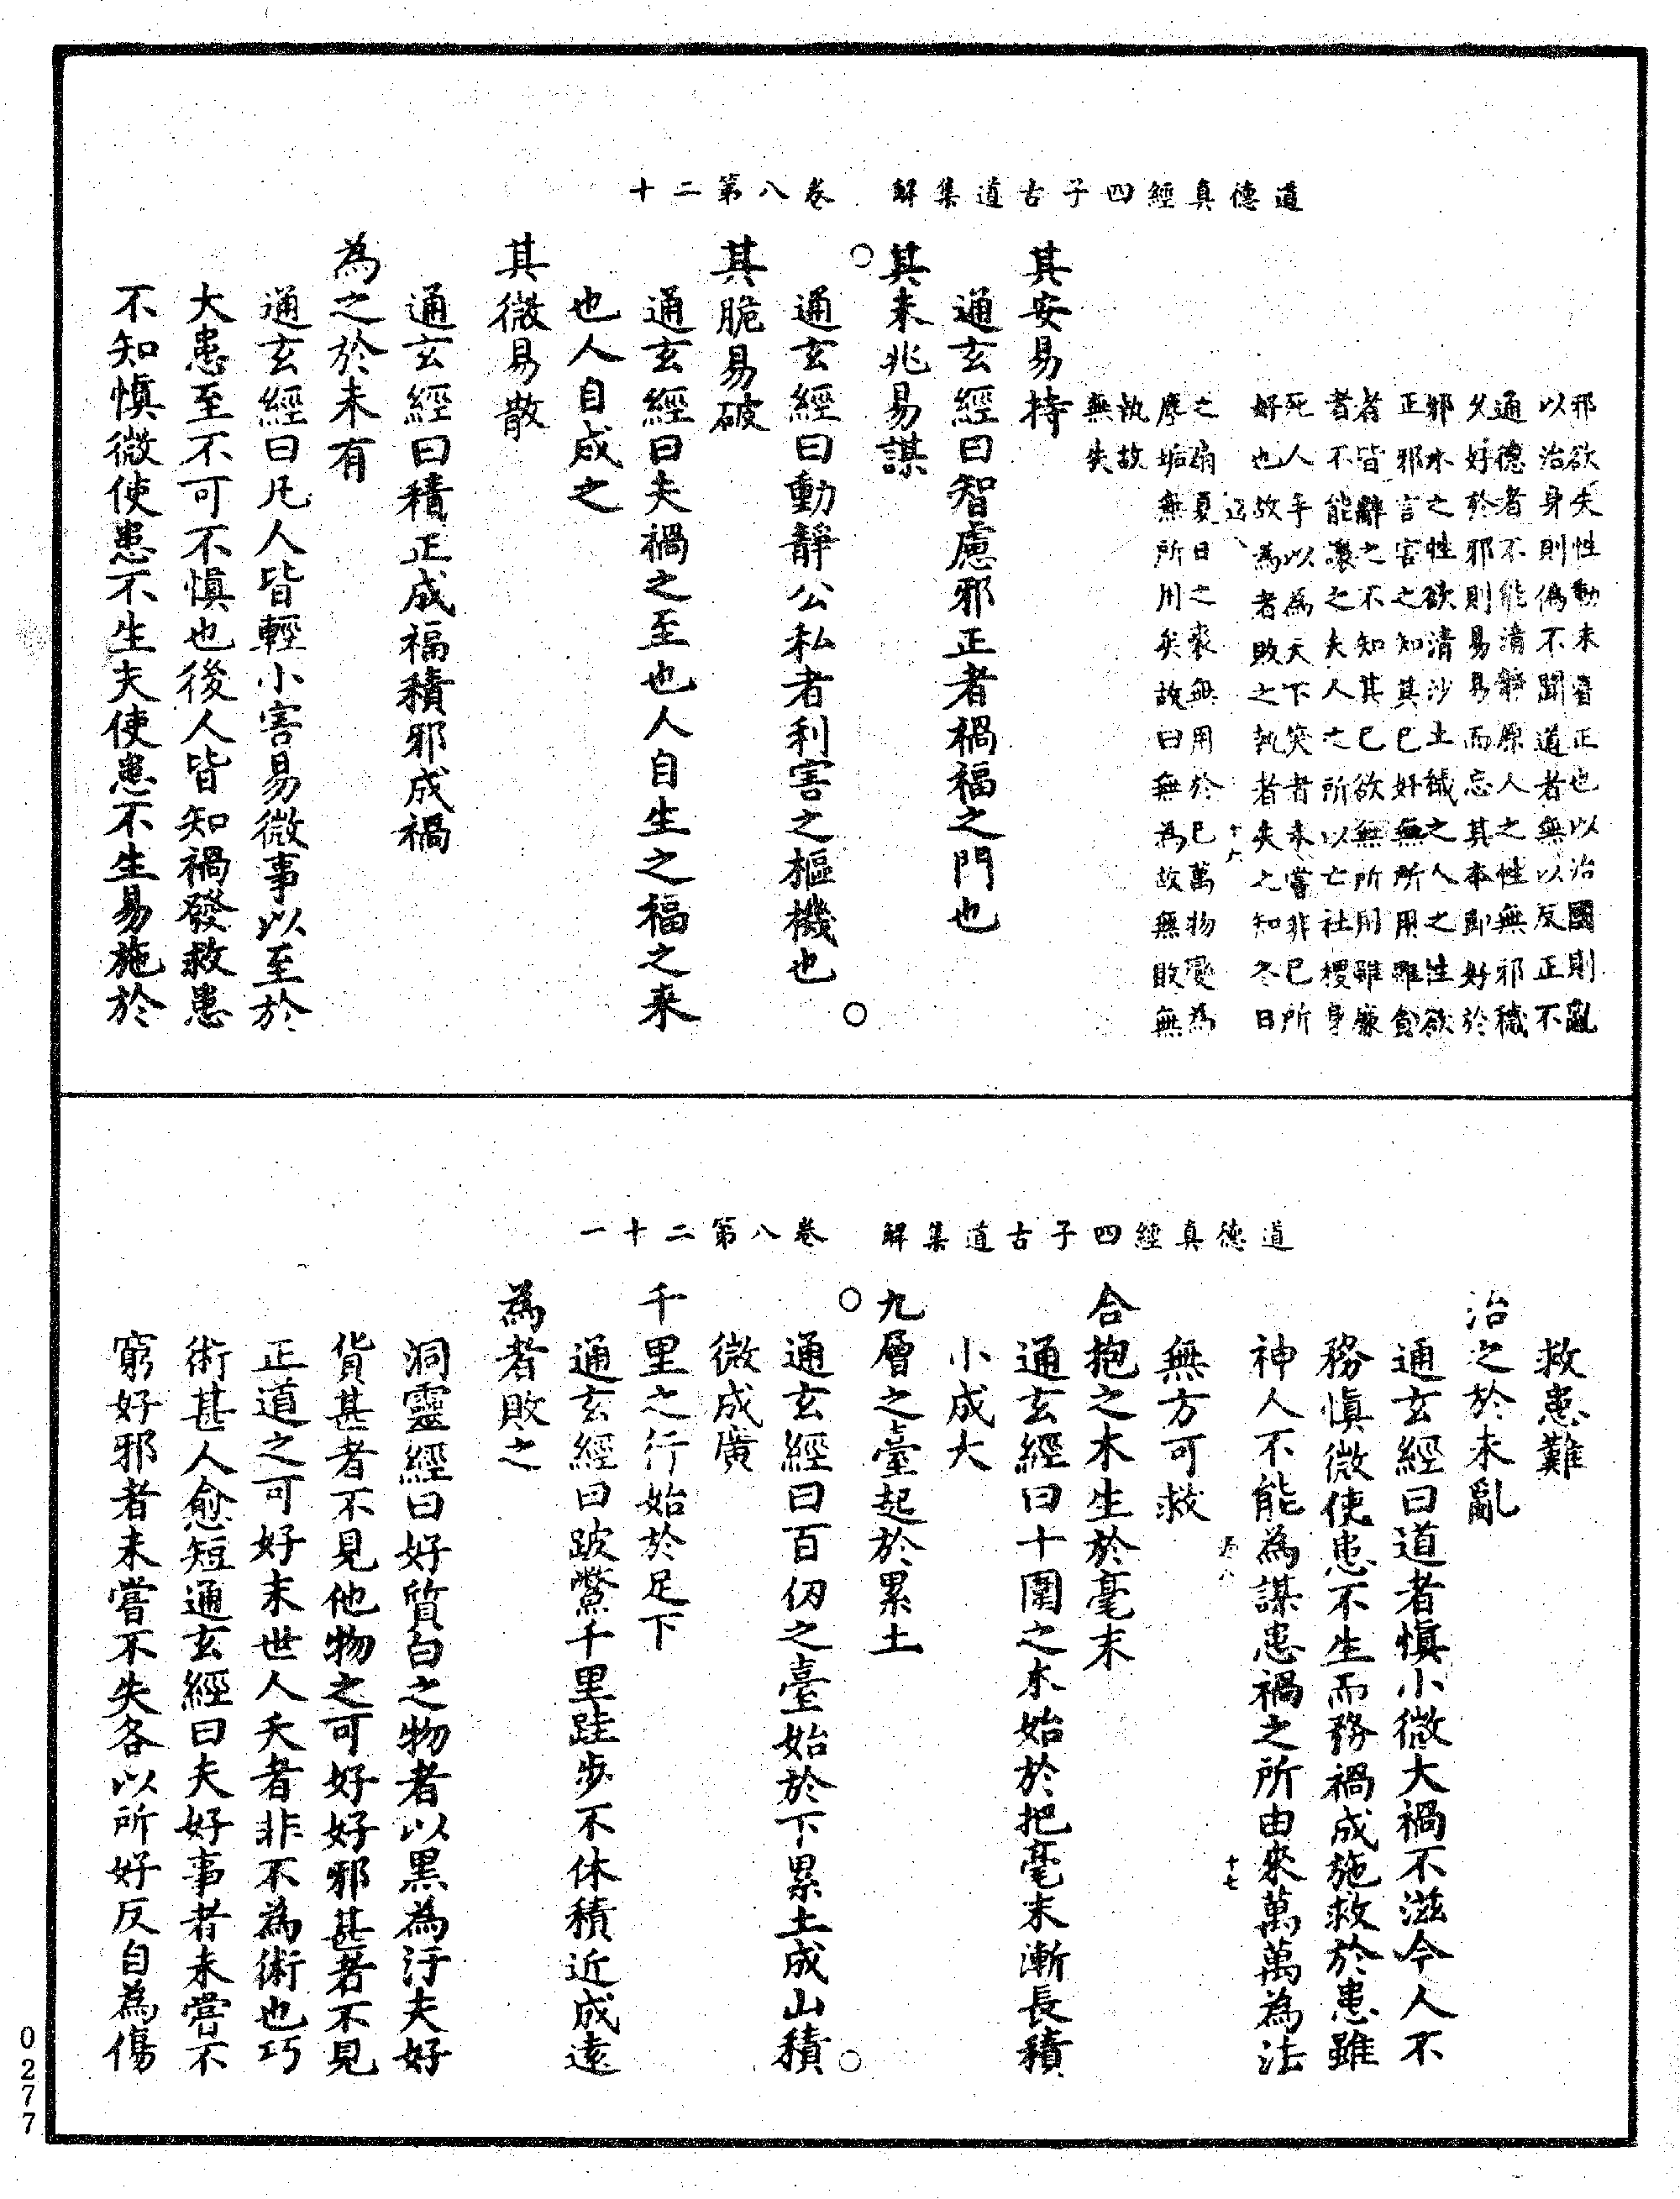 道德真經四子古道集解　卷八第二十
邪欲失性動未嘗正也以治國則亂
以治身則僞不聞道者無以反正不
通德者不能清靜原人之性無邪穢
久好於邪則易易而忘其本即好於
邪水之性欲清沙土穢之人之性欲
正邪言害之知其已好無所用雖貪
者皆辭之不知其已欲無所用雖廉
者不能讓之夫人之所以亡社稷身
死人手以為天下笑者未嘗非已所
好也故為者敗之執者失之知冬日
十六
之扇夏日之裘無用於已萬物變為
塵垢無所用矣故曰無為故無敗無
執故
無失
其安易持
通玄經曰智慮邪正者禍福之門也
其未兆易謀
通玄經曰動靜公私者利害之樞機也
其脆易破
通玄經曰夫禍之至也人自生之福之來
也人自成之
其微易散
通玄經曰積正成福積邪成禍
為之於未有
通玄經曰凡人皆輕小害易微事以至於
大患至不可不慎也後人皆知禍發救患
不知慎微使患不生夫使患不生易施於
道德真經四子古道集解　卷八第二十一
救患難
治之於未亂
通玄經曰道者慎小微大禍不滋今人不
務慎微使患不生而務禍成施救於患雖
神人不能為謀患禍之所由來萬萬為法
十七
無方可救
合抱之木生於毫末
通玄經曰十圍之木始於把毫末漸長積
小成大
九層之臺起於累土
通玄經曰百仞之臺始於下累土成山積
微成廣
千里之行始於足下
通玄經曰跛鱉千里跬步不休積近成遠
為者敗之
洞靈經曰好質白之物者以黑為汙夫好
貨甚者不見他物之可好好邪甚者不見
正道之可好末世人夭者非不為術也巧
術甚人愈短通玄經曰夫好事者未嘗不
窮好邪者未嘗不失各以所好反自為傷
0277